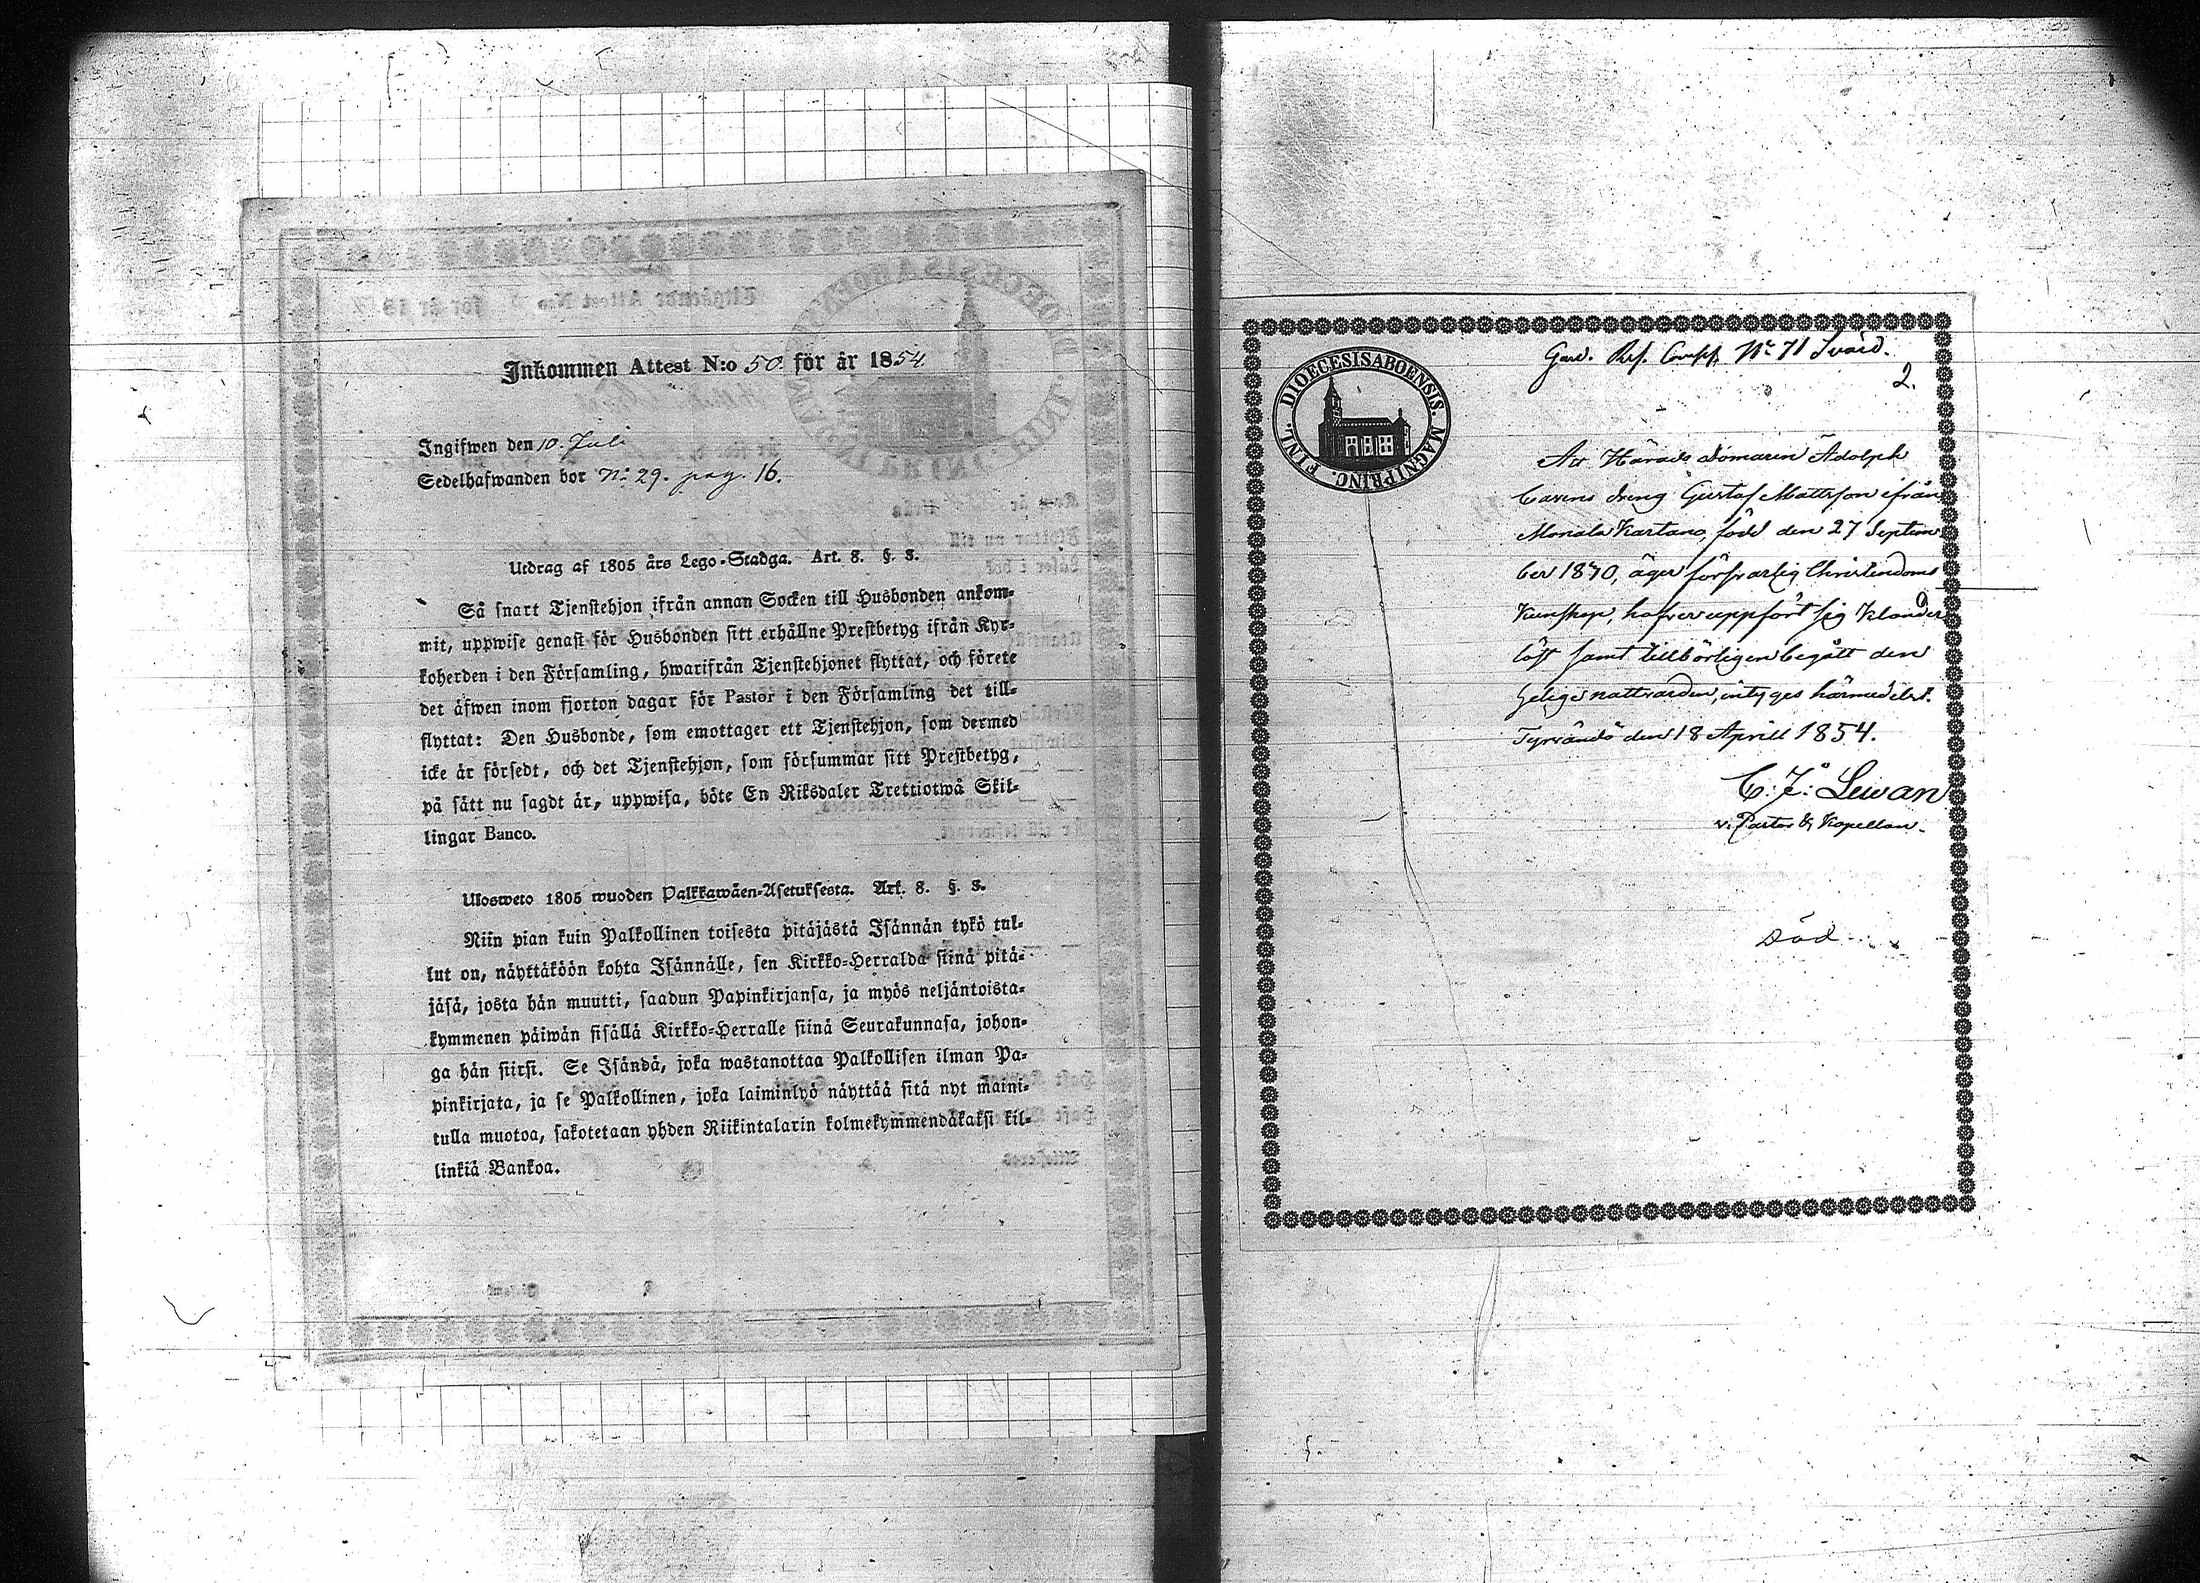 Inkommen Attest N:o 50. för år 1854.
Ingifwen den 10. Juli
Sedelhafwanden bor N:o 29. pag. 16.
Utdrag af 1805 års Lego-Stadga. Art. 8. §. 3.
Så snart Tjenstehjon ifrån annan Socken till Husbonden ankom-
mit, uppwise genast för Husbonden sitt erhållne Prestbetyg ifrån Kyr-
koherden i den Församling, hwarifrån Tjenstehjonet flyttat, och förete
det äfwen inom fjorton dagar för Pastor i den Församling det till-
flyttat: Den Husbonde, som emottager ett Tjenstehjon, som dermed
icke är försedt, och det Tjenstehjon, som försummar sitt Prestbetyg,
på sätt nu sagdt är, uppwisa, böte En Riksdaler Trettiotwå Skil-
lingar Banco.
Ulosweto 1805 wuoden Palkkawäen-Asetuksesta. Art. 8. §. 3.
Niin pian kuin Palkollinen toisesta pitäjästä Isännän tykö tul-
lut on, näyttäköön kohta Isännälle, sen Kirkko-Herralda siinä pitä-
jäsä, josta hän muutti, saadun Papinkirjansa, ja myös neljäntoista-
kymmenen päiwän sisällä Kirkko-Herralle siinä Seurakunnasa, johon-
ga hän siirsi. Se Isändä, joka wastanottaa Palkollisen ilman Pa-
pinkirjata, ja se Palkollinen, joka laiminlyö näyttää sitä nyt maini-
tulla muotoa, sakotetaan yhden Riikintalarin kolmekymmendäkaksi kil-
linkiä Bankoa.
DIOECESIS ABOENSIS. MAGNI PRINC. FINL.
Gard. Res. Comp. No 71 Svärd.
2.
Att Härads Domaren Adolph
Carens dreng Gustaf Mattsson ifrån
Monala Kartano, född den 27 Septem
ber 1870, äger försvarlig Christendoms
Kunskap, hafver uppfört sig Klander
löst samt tillbörligen begått den
Helige nattvarden, intygas härmedelst.
Tyrvändö den 18 Aprill 1854.
C: J: Lewan
v. Pastor & Kapellan.
Död